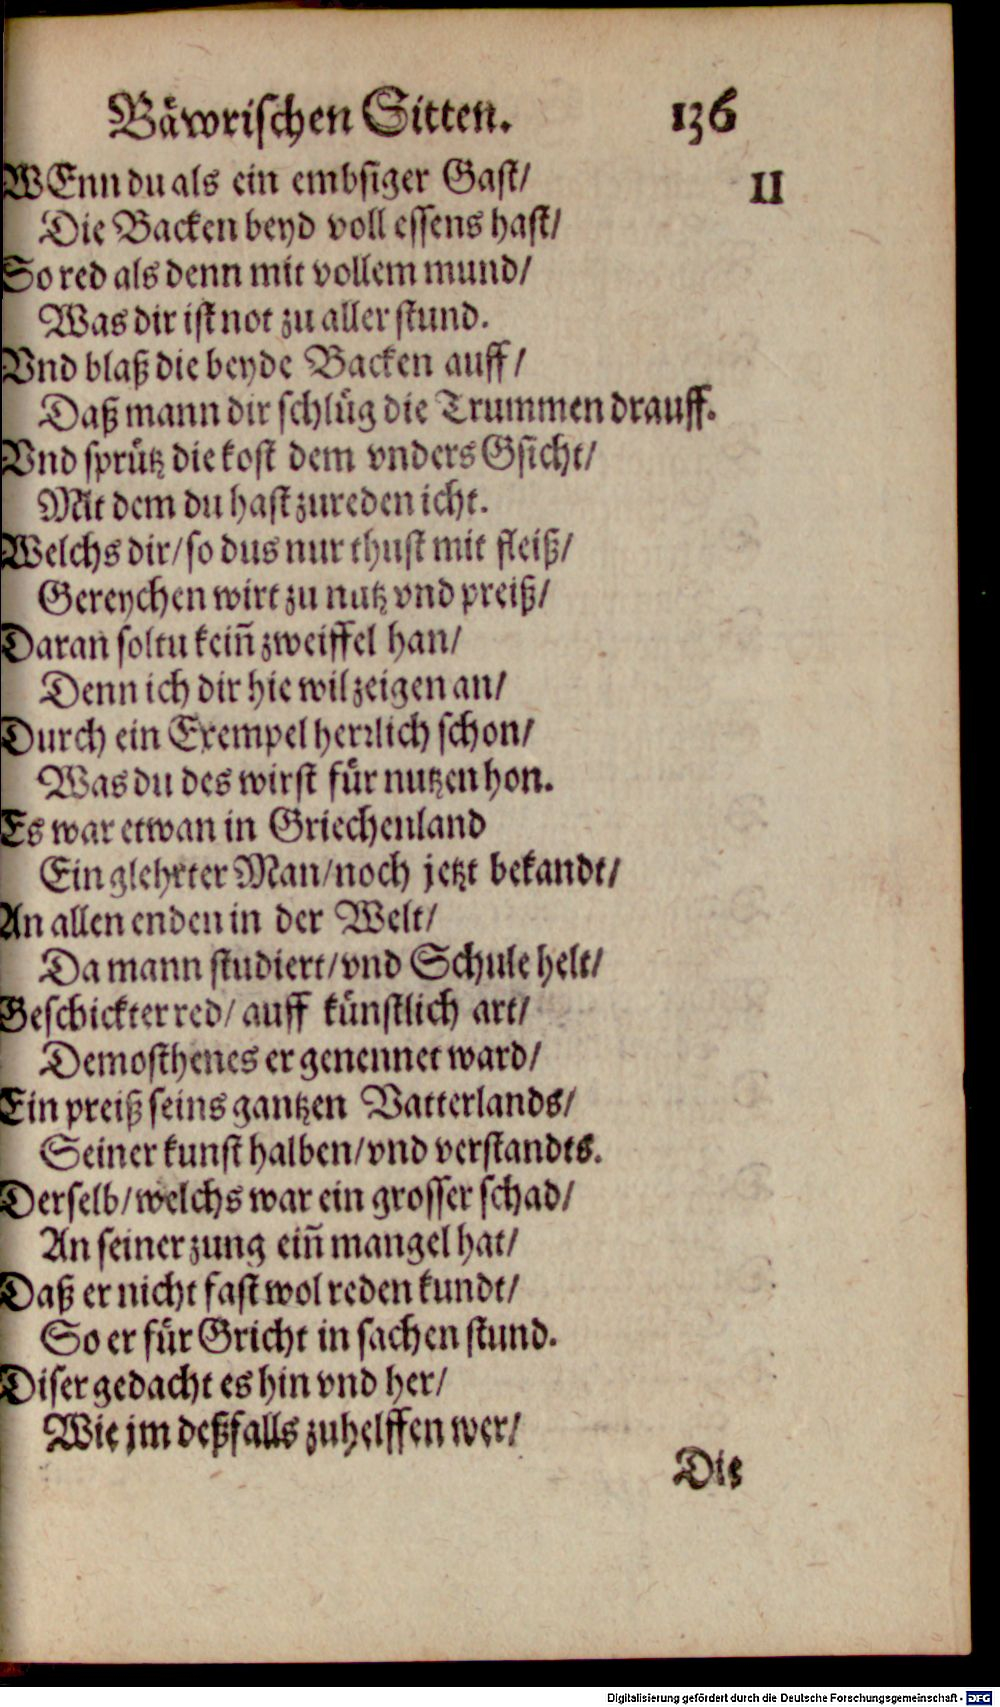 Bäwrischen Sitten. 136
WEnn du als ein embsiger Gast/ II
Die Backen beyd voll essens hast/
So red als denn mit vollem mund/
Was dir ist not zu aller stund.
Vnd blaß die beyde Backen auff/
Daß mann dir schlüg die Trummen drauff.
Vnd sprütz die kost dem vnders Gsicht/
Mit dem du hast zureden icht.
Welchs dir/so dus nur thust mit fleiß/
Gereychen wirt zu nutz vnd preiß/
Daran soltu keiñ zweiffel han/
Denn ich dir hie wil zeigen an/
Durch ein Exempel herrlich schon/
Was du des wirst für nutzen hon.
Es war etwan in Griechenland
Ein glehrter Man/noch jetzt bekandt/
An allen enden in der Welt/
Da mann studiert/vnd Schule helt/
Geschickter red/ auff künstlich art/
Demosthenes er genennet ward/
Ein preiß seins gantzen Vatterlands/
Seiner kunst halben/vnd verstandts.
Derselb/welchs war ein grosser schad/
An seiner zung eiñ mangel hat/
Daß er nicht fast wol reden kundt/
So er für Gricht in sachen stund.
Diser gedacht es hin vnd her/
Wie jm deßfalls zuhelffen wer/
Die
Digitalisierung gefördert durch die Deutsche Forschungsgemeinschaft - DFG